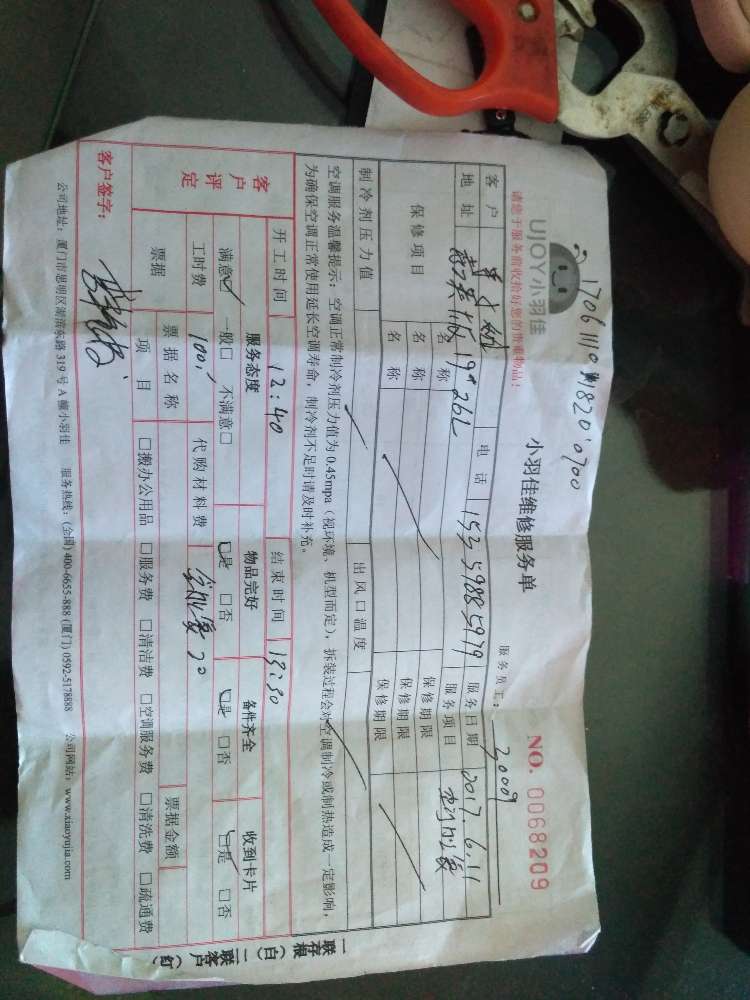 1706111091182010700
UJOY小羽佳
小羽佳维修服务单
NO. 0068209
请您于服务前收拾好您的贵重物品！
服务员工： 3009
客户 电话 15359885979 服务日期 2017.6.11
地址 19# 26L 服务项目
保修项目 名称 保修期限
名称 保修期限
名称 保修期限
制冷剂压力值 出风口温度
空调服务温馨提示：空调正常制冷剂压力值为0.45mpa（视环境、机型而定），拆装过程会对空调制冷或制热造成一定影响，
为确保空调正常使用延长空调寿命，制冷剂不足时请及时补充。
开工时间 12:40 结束时间 13:30
客户评定 服务态度 物品完好 备件齐全 收到卡片
满意☑ 一般□ 不满意□ ☑是 □否 ☑是 □否 ☑是 □否
工时费 100.- 代购材料费 70
票据 票据名称 票据金额
项目 □搬办公用品 □服务费 □清洁费 □空调服务费 □清洗费 □疏通费
客户签字：
公司地址：厦门市思明区湖滨东路319号A幢小羽佳 服务热线：(全国) 400-6655-888 (厦门) 0592-5178888 公司网站：www.xiaoyujia.com
一联存根（白）二联客户（红）